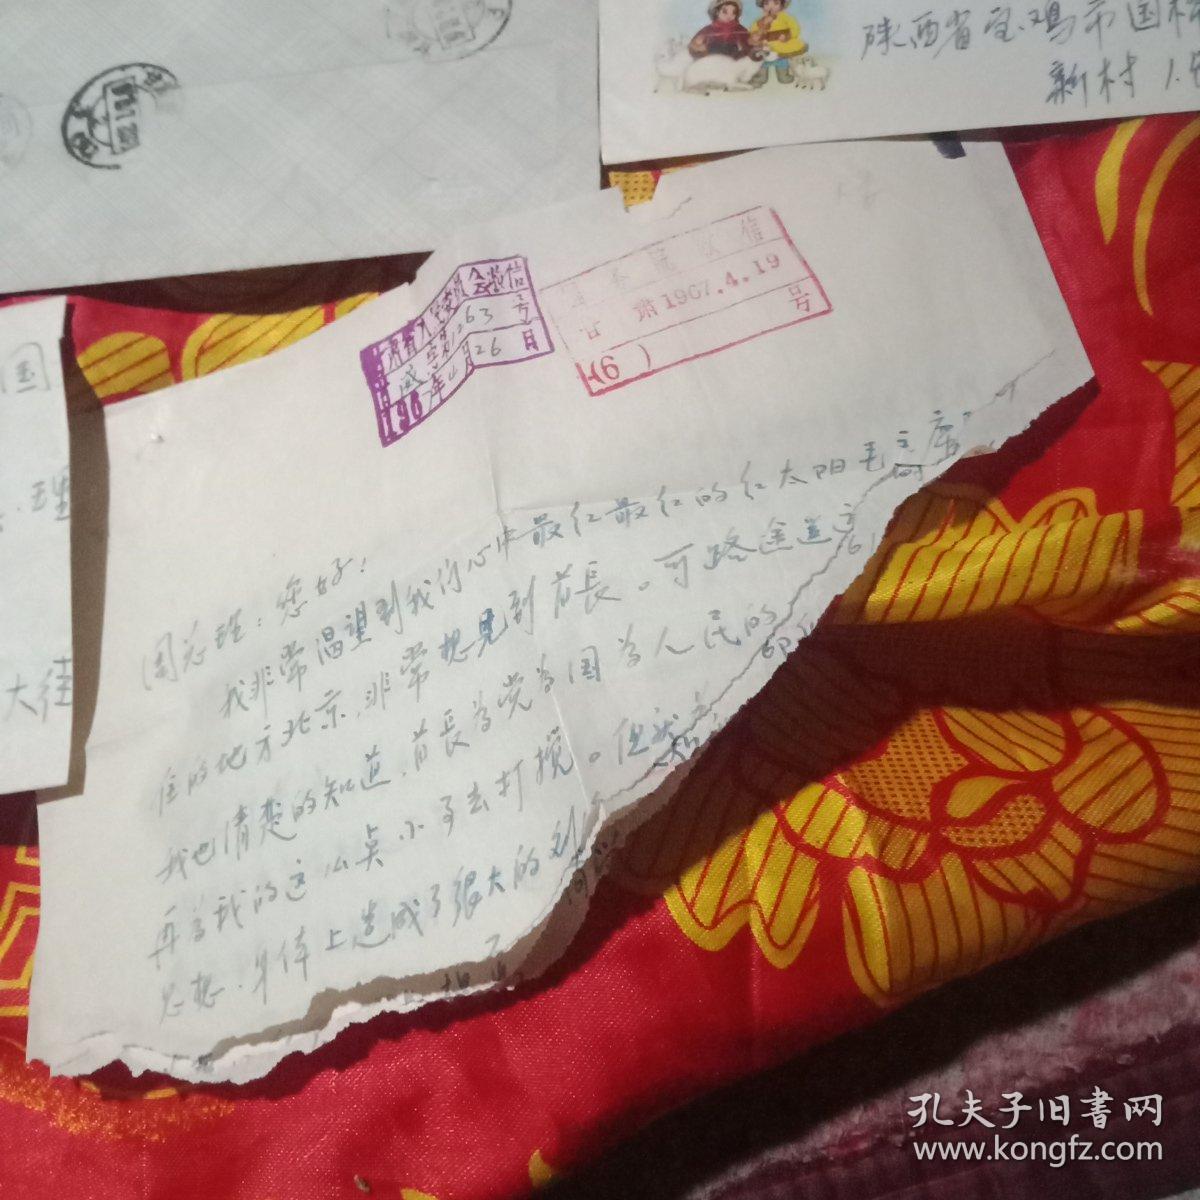 陕西省宝鸡市国
新村1
国
理
大往
甘肃省人民委员会收信
字第1263号
196 年4月26日
国务院收信
甘 肃1967.4.19
(6) 号
周总理：您好！
我非常渴望到我们心中最红最红的红太阳毛主席
住的地方北京，非常想见到首長。可路途遥
我也清楚的知道，首長为党为国为人民的
再为我的这么点小事去打搅。但
思想、身体上造成了很大的
孔夫子旧書网
www.kongfz.com